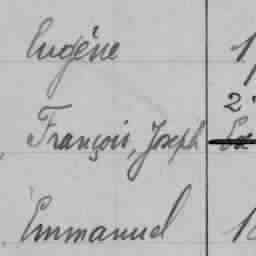 Eugène
François, Joseph
Emmanuel